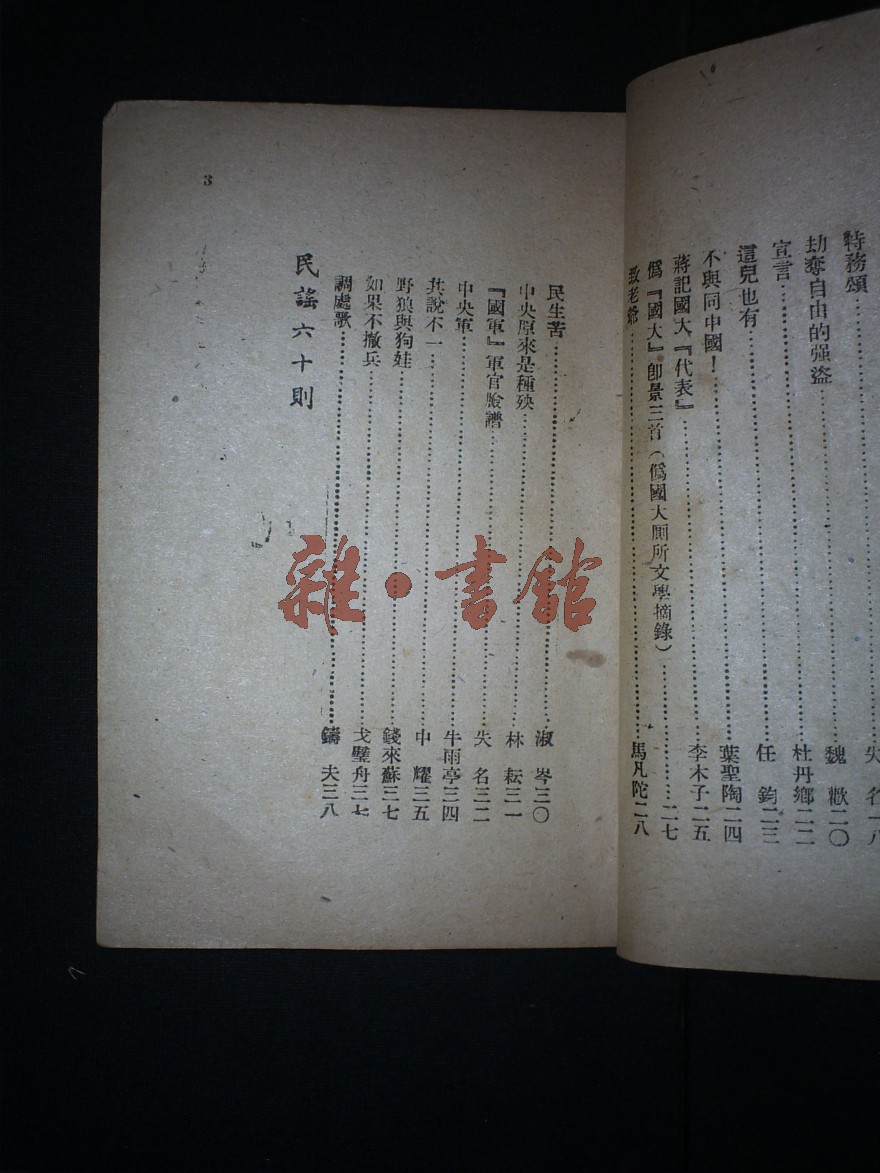 特務頌……失 名一八
劫奪自由的强盜……魏 歡二〇
宣言……杜丹鄉二二
這兒也有……任 鈞二三
不與同中國！……葉聖陶二四
蔣記國大『代表』……李木子二五
僞『國大』卽景三首（僞國大厠所文學摘錄）……二七
致老爺……馬凡陀二八
民生苦……淑 岑三〇
中央原來是種殃……林 耘三一
『國軍』軍官臉譜……失 名三二
中央軍……牛雨亭三四
共說不一……申 耀三五
野狼與狗娃……錢來蘇三七
如果不撤兵……戈壁舟三七
調處歌……鑄 夫三八
民謠六十則
3
雜·書館